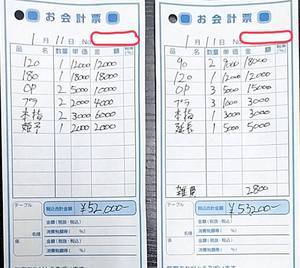 お会計票
1月11日 No
品名 数量 単価 金額
120 1 12000 12000
180 1 18000 18000
OP 2 5000 10000
プラ 2 2000 4000
本指 2 3000 6000
姫予 1 2000 2000
テーブル
税込合計金額
¥52000-
名様
金額(税抜・税込)
消費税額等 (%)
金額(税抜・税込)
消費税額等 (%)
お会計票
1月11日 No
品名 数量 単価 金額
90 2 9000 18000
120 1 12000 12000
OP 3 5000 15000
プラ 1 3000 3000
本指 1 3000 3000
延長 1 5000 5000
雑費 2800
テーブル
税込合計金額
¥53200-
名様
金額(税抜・税込)
消費税額等 (%)
金額(税抜・税込)
消費税額等 (%)